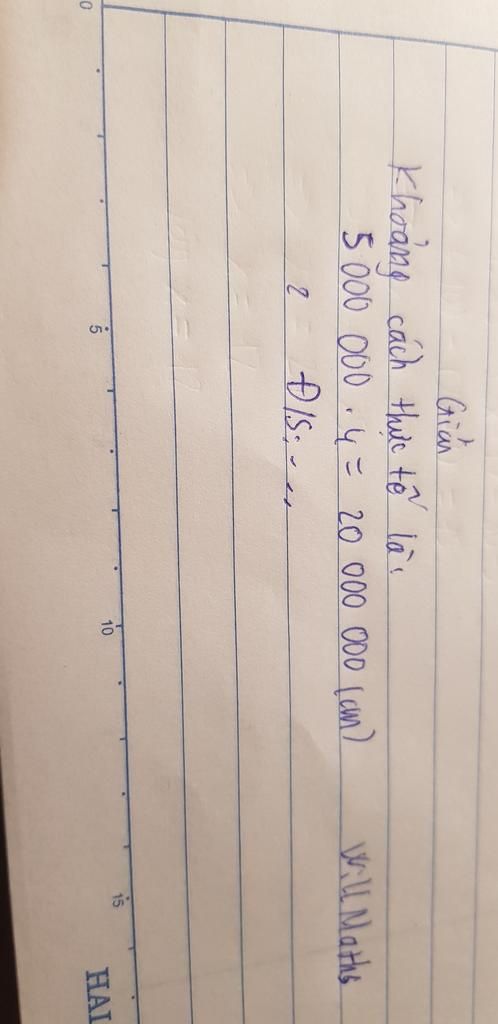 Giải
Khoảng cách thực tế là:
5 000 000 . 4 = 20 000 000 (cm) Will Maths
Đ/S: - - -
0 5 10 15 HAI